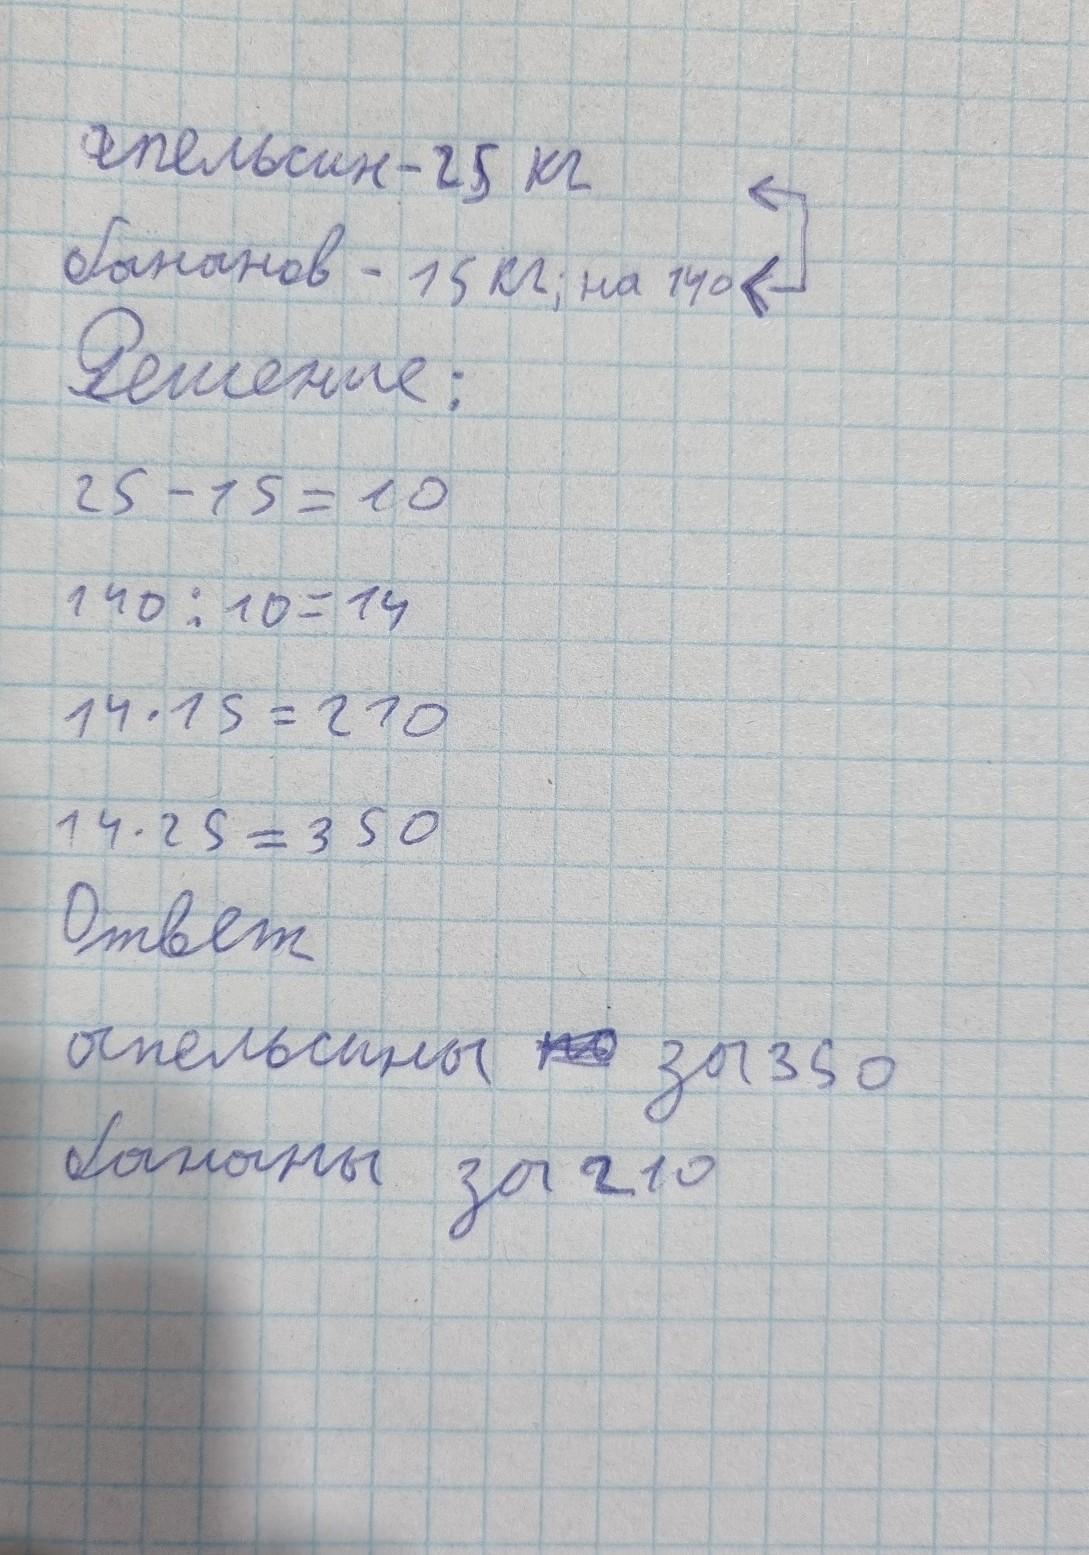 апельсин - 25 кг
бананов - 15 кг; на 140
Решение:
25 - 15 = 10
140 : 10 = 14
14 · 15 = 210
14 · 25 = 350
Ответ
апельсины за 350
бананы за 210